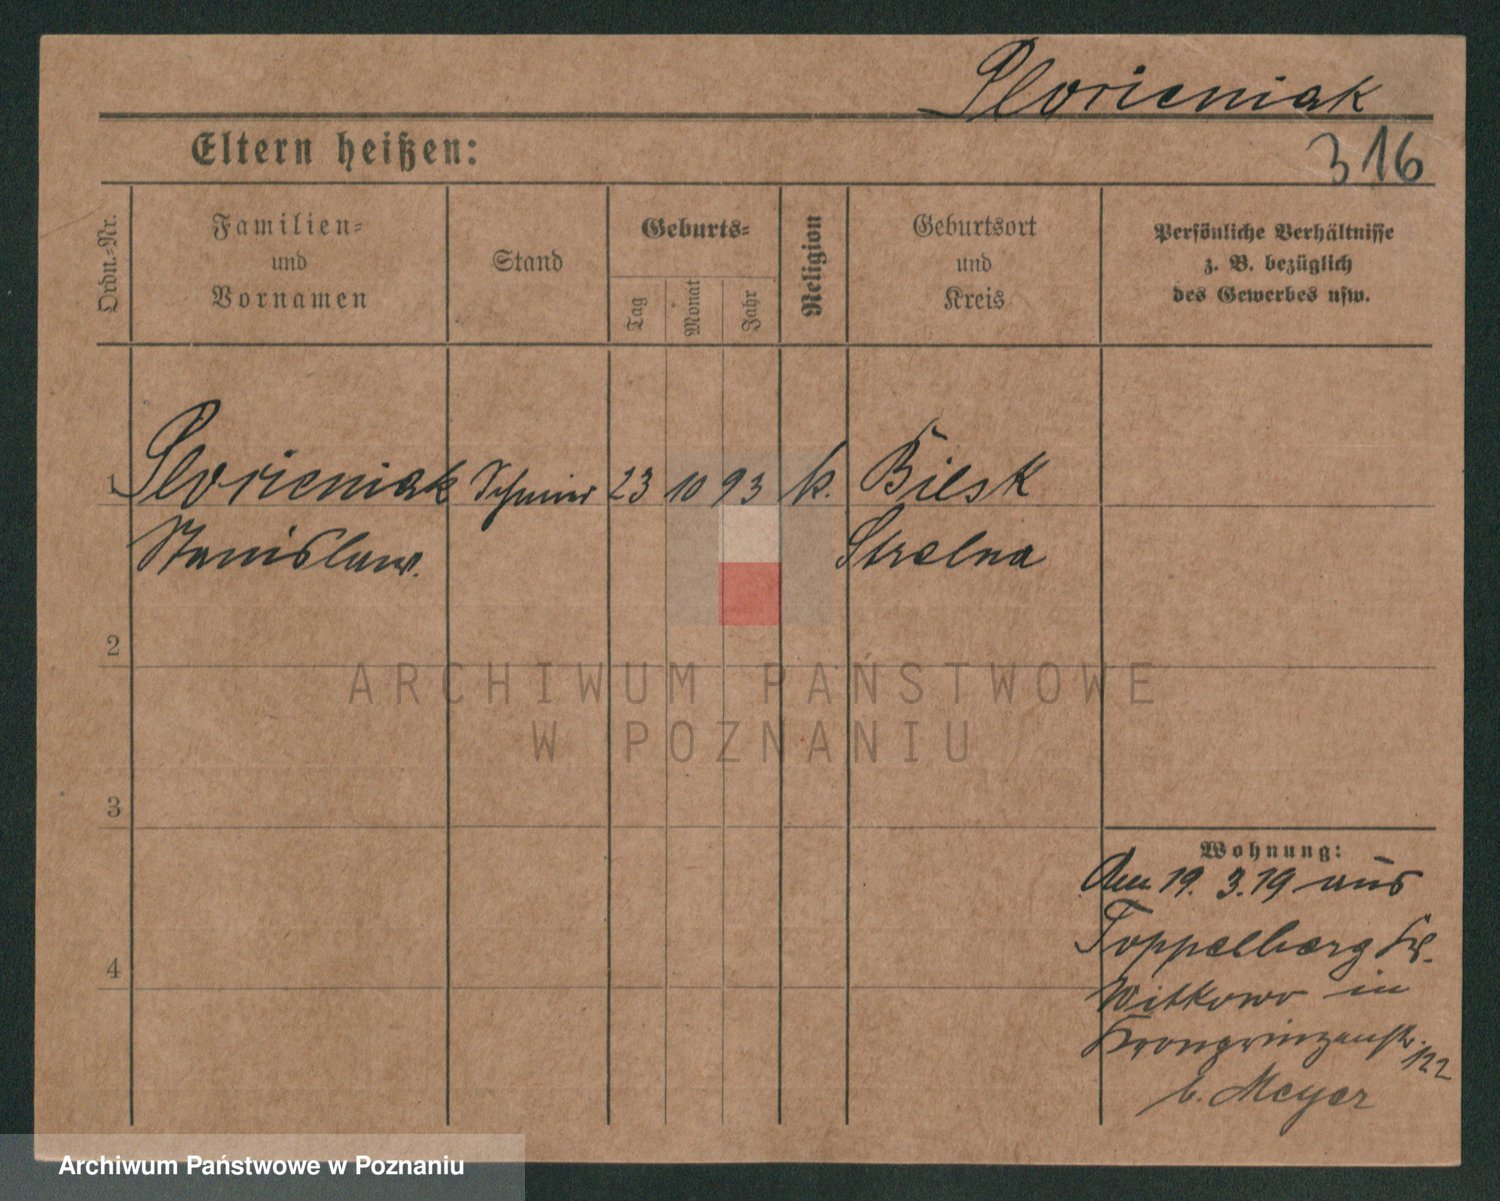 Plorieniak
316
Eltern heißen:
Ordn.-Nr.
Familien-
und
Vornamen
Stand
Geburts-
Tag
Monat
Jahr
Religion
Geburtsort
und
Kreis
Persönliche Verhältnisse
z. B. bezüglich
des Gewerbes usw.
1 Plorieniak 23 10 93 k. Bilsk
Stanislaw. Strelna
2
3
4
ARCHIWUM PAŃSTWOWE
W POZNANIU
Wohnung:
Den 19. 3. 19 aus
Toppelberg Kr.
Witkowo in
Kronprinzenstr. 122
b. Meyer
Archiwum Państwowe w Poznaniu